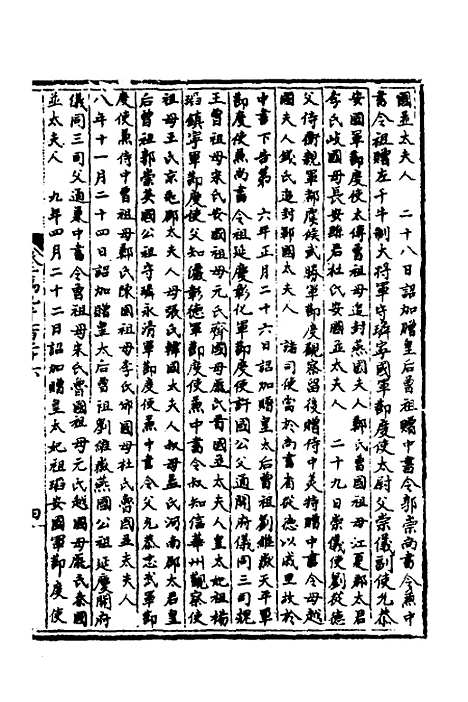 國並太夫人　二十八日詔加贈皇后曾祖贈中書令郭崇尚書令兼中
書令祖贈左千牛衛大將軍守璘寧國軍節度使太尉父崇儀副使允恭
安國軍節度使太傅曾祖母追封燕國夫人鄭氏曹國祖母江夏郡太君
李氏岐國母長安縣君杜氏安國並太夫人　二十九日崇儀使劉從德
父侍衛親軍都虞候武勝軍節度觀察留後贈侍中美特贈中書令母越
國夫人錢氏追封鄆國太夫人　諸司使當於尚書省從德以戚里故於
中書下告第　六年正月二十六日詔加贈皇太后曾祖劉維嶽天平軍
節度使兼尚書令祖延慶彰化軍節度使許國公父通開府儀同三司魏
王曾祖母宋氏安國祖母元氏齊國母龐氏晉國並太夫人皇太妃祖楊
瑫鎮寧軍節度使父知儼彰德軍節度使兼中書令叔知信華州觀察使
祖母王氏京兆郡太夫人母張氏韓國太夫人叔母孟氏河南郡太君皇
后曾祖郭崇英國公祖守璘永清軍節度使兼中書令父允恭忠武軍節
度使兼侍中曾祖母鄭氏陳國祖母李氏邠國母杜氏魯國並太夫人
八年十一月二十四日詔加贈皇太后曾祖劉維嶽燕國公祖延慶開府
儀同三司父通兼中書令曾祖母宋氏魯國祖母元氏越國母龐氏秦國
並太夫人　九年四月二十二日詔加贈皇太妃祖瑫安國軍節度使